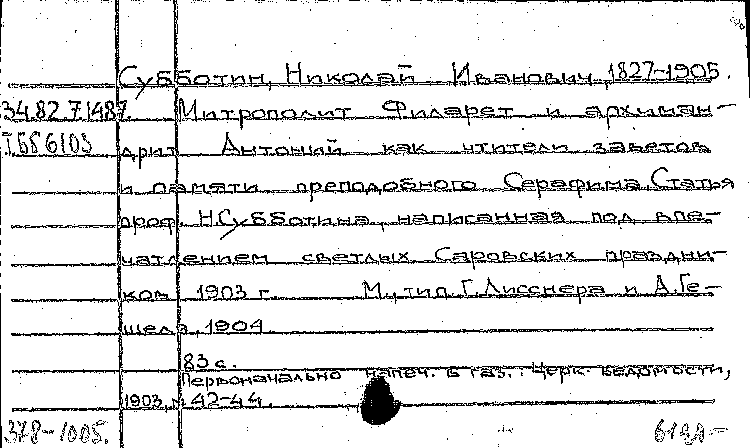 Субботин, Николай Иванович, 1827-1905.
34.82.7.1487. Митрополит Филарет и архиман-
дрит Антоний как чтители заветов
и памяти преподобного Серафима. Статья
проф. Н. Субботина, написанная под впе-
чатлением светлых Саровских праздни-
ков 1903 г. М., тип. Г. Лисснера и А. Ге-
шеля, 1904.
83 с.
Первоначально напеч. в газ.: Церк. ведомости,
1903, № 42-44.
378-1005.